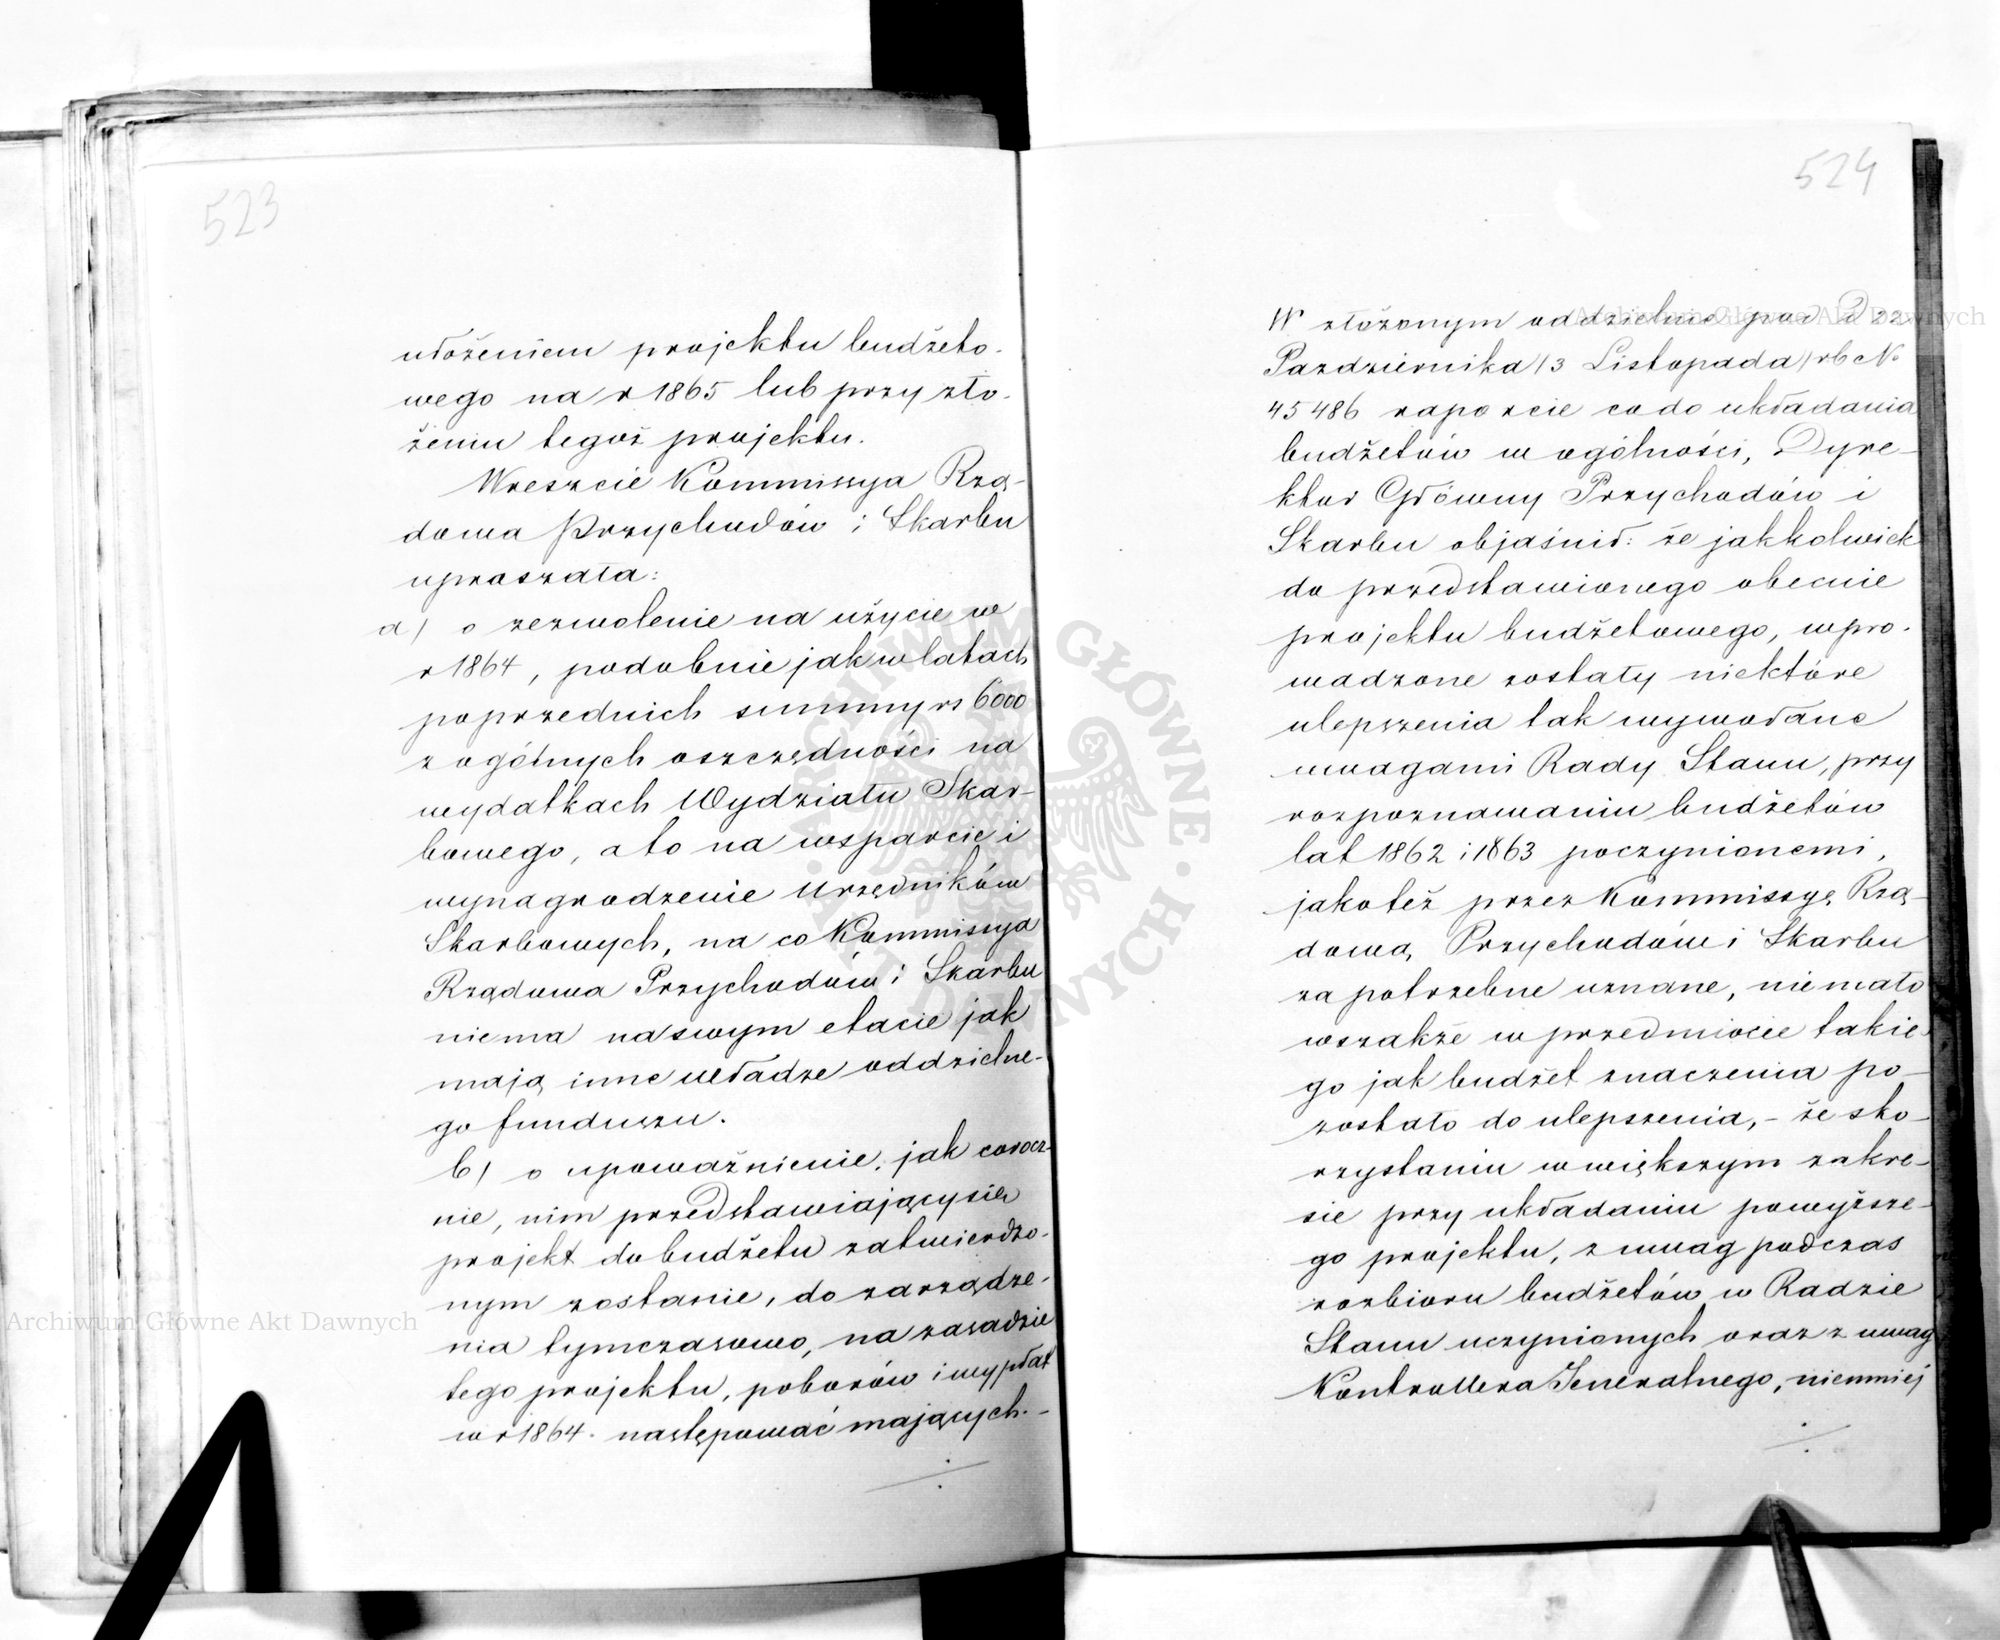 523
ułożeniem projektu budżeto-
wego na r 1865 lub przy zło-
żeniu tegoż projektu.
Wreszcie Kommissya Rzą-
dowa Przychodów i Skarbu
upraszała:
a) o zezwolenie na użycie w
r 1864, podobnie jak w latach
poprzednich summy rs 6000
z ogólnych oszczędności na
wydatkach Wydziału Skar-
bowego, a to na wsparcie i
wynagrodzenie Urzędników
Skarbowych, na co Kommissya
Rządowa Przychodów i Skarbu
niema na swym etacie jak
mają inne władze oddzielne-
go funduszu.
b) o upoważnienie, jak corocz-
nie, nim przedstawiający się
projekt do budżetu zatwierdzo-
nym zostanie, do zarządze-
nia tymczasowo, na zasadzie
tego projektu, poborów i wypłat
w r 1864. następować mających.-
524
W złożonym oddzielnie pod D 22
Pazdziernika/3 Listopada/ rb No
45486 raporcie co do układania
budżetów w ogólności, Dyre-
ktor Główny Przychodów i
Skarbu objaśnił: że jakkolwiek
do przedstawionego obecnie
projektu budżetowego, wpro-
wadzone zostały niektóre
ulepszenia tak wywołane
uwagami Rady Stanu, przy
rozpoznawaniu budżetów
lat 1862 i 1863 poczynionemi,
jako też przez Kommissyę Rzą-
dową Przychodów i Skarbu
za potrzebne uznane, niemało
wszakże w przedmiocie takie-
go jak budżet znaczenia po-
zostało do ulepszenia,- że sko-
rzystaniu w większym zakre-
sie przy układaniu powyższe-
go projektu, z uwag podczas
rozbioru budżetów w Radzie
Stanu uczynionych oraz z uwag
Kontrollera Jeneralnego, niemniej
Archiwum Główne Akt Dawnych
Archiwum Główne Akt Dawnych
ARCHIWUM GŁÓWNE AKT DAWNYCH